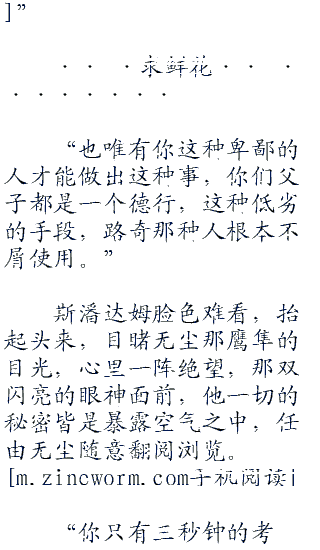 ]”
· · ·求鲜花· · ·
· · · · · · ·
“也唯有你这种卑鄙的
人才能做出这种事，你们父
子都是一个德行，这种低劣
的手段，路奇那种人根本不
屑使用。”
斯潘达姆脸色难看，抬
起头来，目睹无尘那鹰隼的
目光，心里一阵绝望，那双
闪亮的眼神面前，他一切的
秘密皆是暴露空气之中，任
由无尘随意翻阅浏览。
[m.zincworm.com手机阅读i
“你只有三秒钟的考